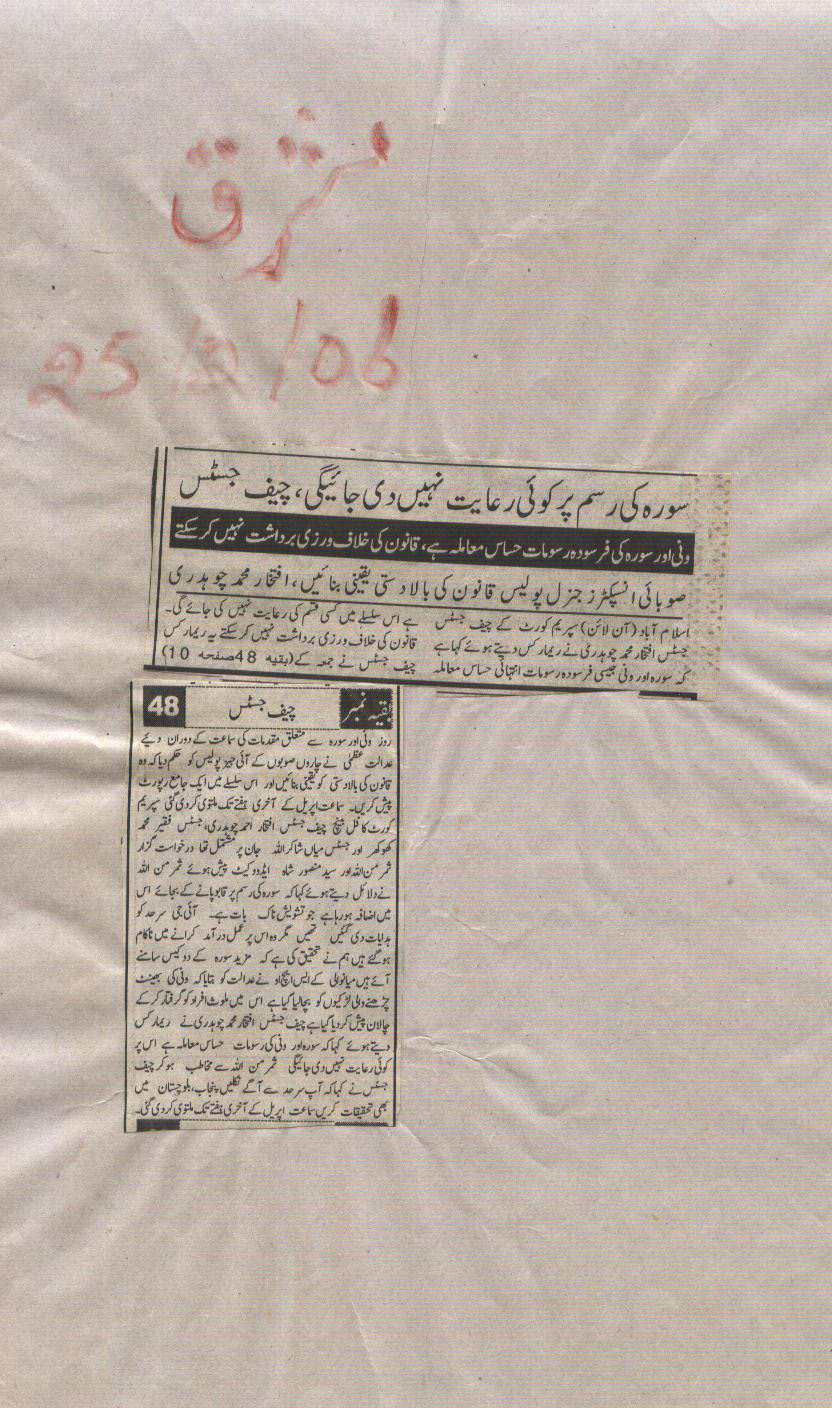 مشرق
25/2/06
سورہ کی رسم پر کوئی رعایت نہیں دی جائیگی، چیف جسٹس
ونی اور سورہ کی فرسودہ رسومات حساس معاملہ ہے، قانون کی خلاف ورزی برداشت نہیں کر سکتے
صوبائی انسپکٹرز جنرل پولیس قانون کی بالادستی یقینی بنائیں، افتخار محمد چوہدری
اسلام آباد (آن لائن) سپریم کورٹ کے چیف جسٹس
جسٹس افتخار محمد چوہدری نے ریمارکس دیتے ہوئے کہا ہے
کہ سورہ اور ونی جیسی فرسودہ رسومات انتہائی حساس معاملہ
ہے اس سلسلے میں کسی قسم کی رعایت نہیں کی جائے گی۔
قانون کی خلاف ورزی برداشت نہیں کر سکتے یہ ریمارکس
چیف جسٹس نے جمعہ کے (بقیہ 48 صفحہ 10)
بقیہ نمبر چیف جسٹس 48
روز ونی اور سورہ سے متعلق مقدمات کی سماعت کے دوران دیئے
عدالت عظمیٰ نے چاروں صوبوں کے آئی جیز پولیس کو حکم دیا کہ وہ
قانون کی بالادستی کو یقینی بنائیں اور اس سلسلے میں ایک جامع رپورٹ
پیش کریں۔ سماعت اپریل کے آخری ہفتے تک ملتوی کر دی گئی سپریم
کورٹ کا فل بینچ چیف جسٹس افتخار احمد چوہدری، جسٹس فقیر محمد
کھوکھر اور جسٹس میاں شاکر اللہ جان پر مشتمل تھا درخواست گزار
ثمر من اللہ اور سید منصور شاہ ایڈووکیٹ پیش ہوئے ثمر من اللہ
نے دلائل دیتے ہوئے کہا کہ سورہ کی رسم پر قابو پانے کے بجائے اس
میں اضافہ ہو رہا ہے جو تشویش ناک بات ہے۔ آئی جی سرحد کو
ہدایات دی گئیں تھیں مگر وہ اس پر عمل درآمد کرانے میں ناکام
ہو گئے ہیں ہم نے تحقیق کی ہے کہ مزید سورہ کے دو کیس سامنے
آئے ہیں میانوالی کے ایس ایچ او نے عدالت کو بتایا کہ ونی کی بھینٹ
چڑھنے والی لڑکیوں کو بچا لیا گیا ہے اس میں ملوث افراد کو گرفتار کر کے
چالان پیش کر دیا گیا ہے چیف جسٹس افتخار محمد چوہدری نے ریمارکس
دیتے ہوئے کہا کہ سورہ اور ونی کی رسومات حساس معاملہ ہے اس پر
کوئی رعایت نہیں دی جائیگی ثمر من اللہ سے مخاطب ہو کر چیف
جسٹس نے کہا کہ آپ سرحد سے آگے نکلیں پنجاب، بلوچستان میں
بھی تحقیقات کریں سماعت اپریل کے آخری ہفتے تک ملتوی کر دی گئی۔